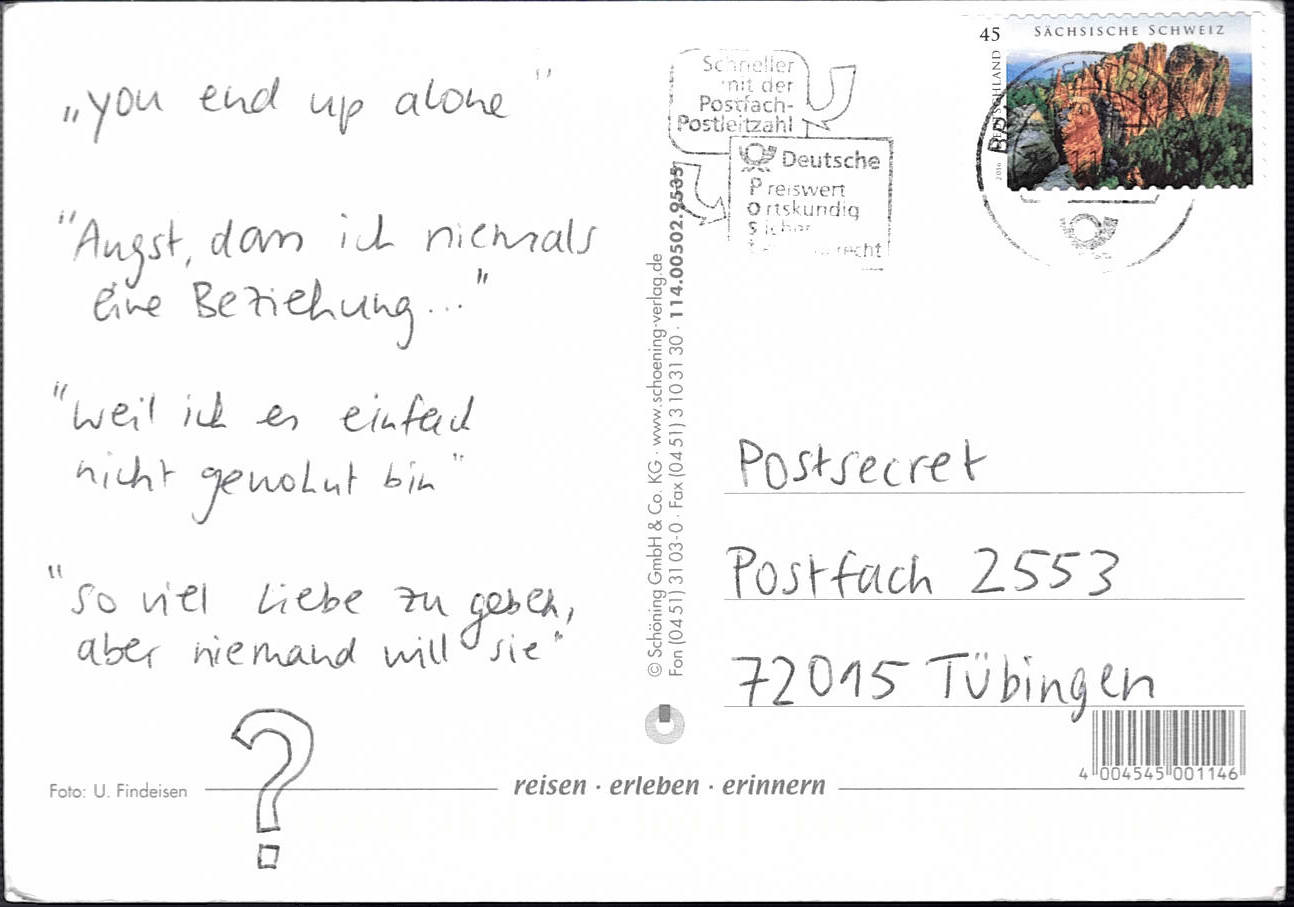 „you end up alone"
"Angst, dass ich niemals
eine Beziehung..."
"weil ich es einfach
nicht gewohnt bin"
"so viel Liebe zu geben,
aber niemand will sie"
?
Foto: U. Findeisen
reisen · erleben · erinnern
© Schöning GmbH & Co. KG · www.schoening-verlag.de
Fon (04 51) 31 03-0 · Fax (04 51) 3 10 31 30 · 114.00502.9535
Schneller
mit der
Postfach-
Postleitzahl
Deutsche
Preiswert
Ortskundig
Sicher
45
SÄCHSISCHE SCHWEIZ
DEUTSCHLAND
2016
Postsecret
Postfach 2553
72015 Tübingen
4 004545 001146